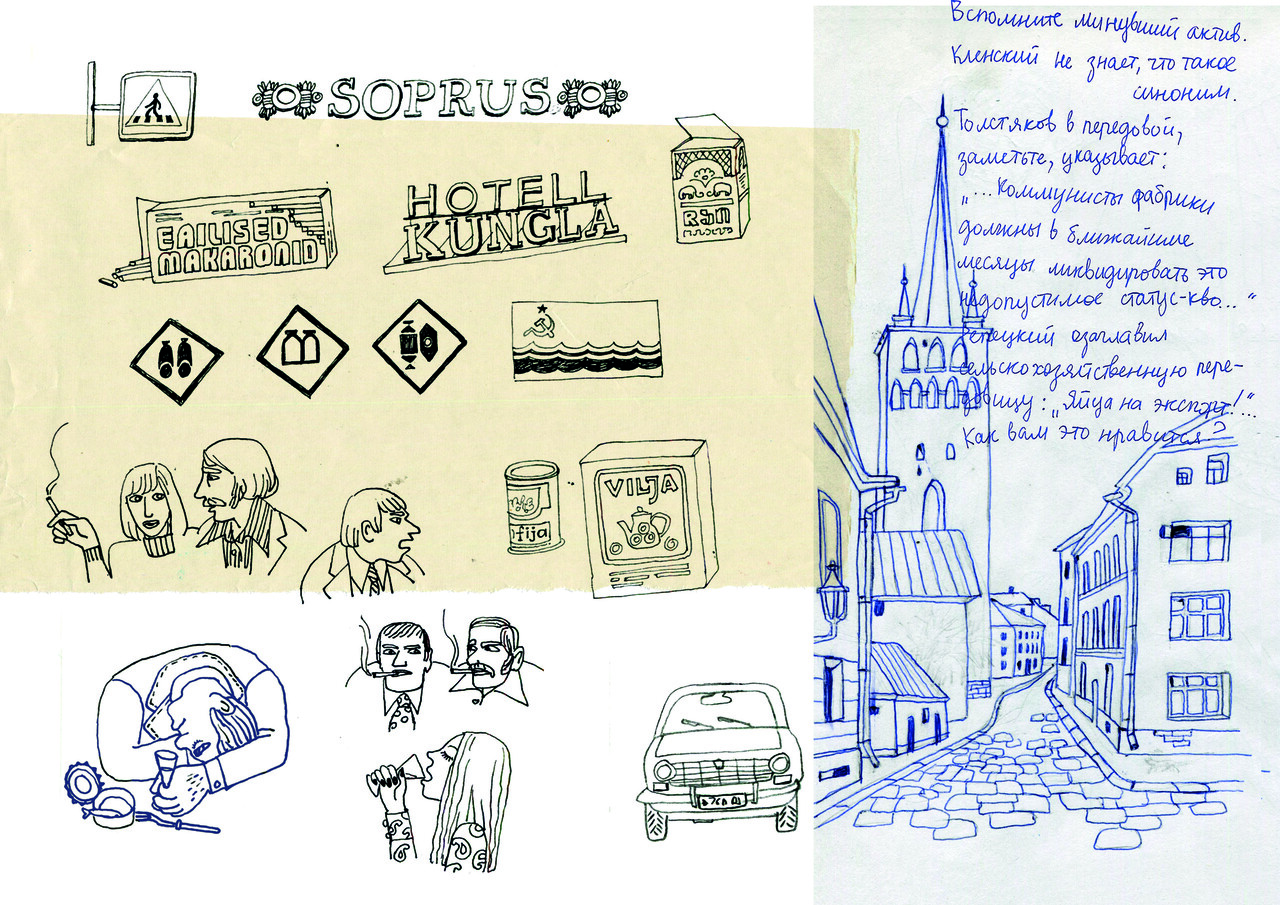 SOPRUS
HOTELL
KUNGLA
EAILISED
MAKARONID
fija
VILJA
Вспомните минувший актив.
Кленский не знает, что такое
синоним.
Толстяков в передовой,
заметьте, указывает:
„...Коммунисты фабрики
должны в ближайшие
месяцы ликвидировать это
недопустимое статус-кво...“
Репецкий озаглавил
сельскохозяйственную пере-
довицу: „Яйца на экспорт!“...
Как вам это нравится?